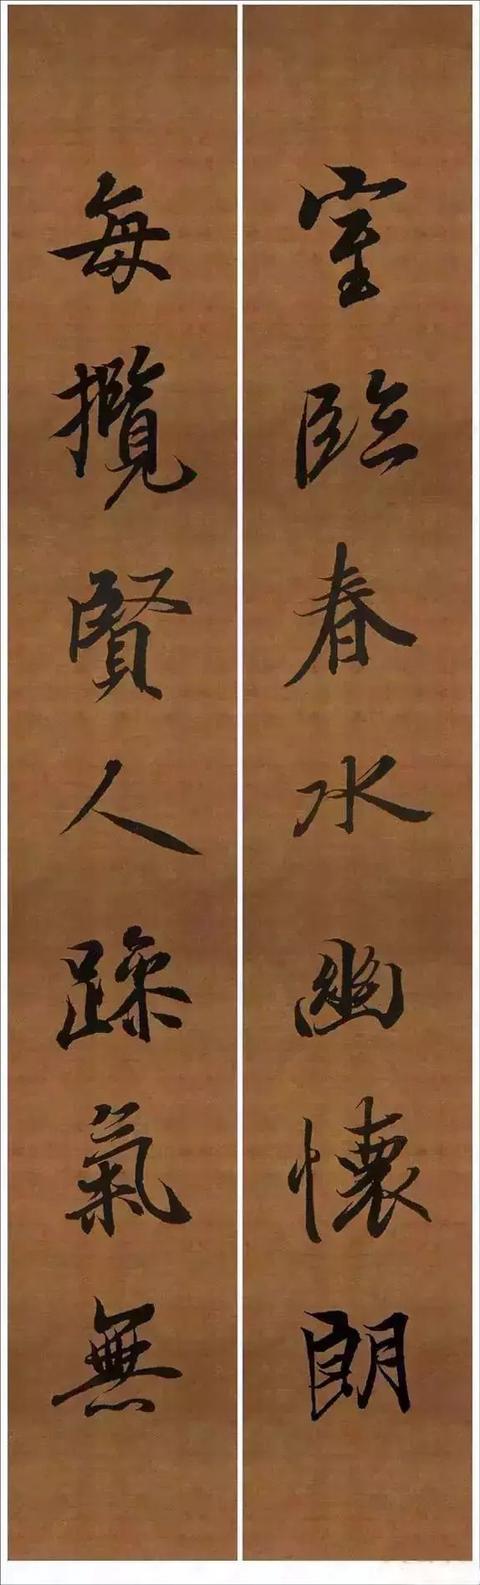 室临春水幽懷朗
每攬賢人躁氣無